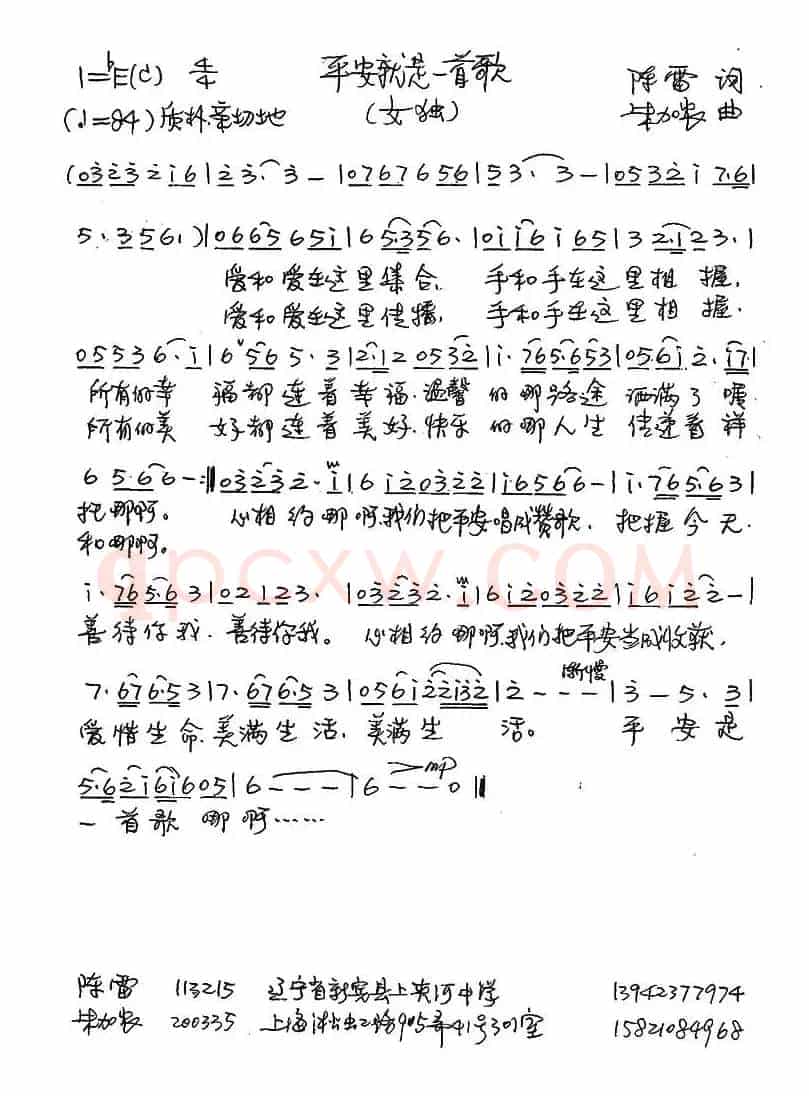 1=♭E(C) 4/4 平安就是一首歌 陈雷 词
(♩=84) 质朴亲切地 (女独) 朱加农 曲
(03̇2̇3̇ 2̇ i̇6|2̇ 3̇· 3̇ –|0767 6 56|5 3· 3 –|0532̇ i̇ 7·6|
5·3 56·)|0665 6 5i̇|6 5·356·|0i̇i̇6 i̇ 65|3 2·1 2 3·|
爱和爱在这里集合, 手和手在这里相握,
爱和爱在这里传播, 手和手在这里相握.
0553 6·i̇|6 56 5·3|2·12 0532̇|i̇·765·653|056i̇ 2̇·i̇7|
所有的幸 福都连着幸福.温馨的哪路途洒满了暖
所有的美 好都连着美好.快乐的哪人生传递着祥
6 5·66–:‖03̇2̇3̇2̇·i̇|6 i̇2̇03̇2̇2̇|i̇·6566–|i̇·765·63|
把哪啊。 心相约哪啊,我们把平安唱成赞歌, 把握今天.
和哪啊。
qpcxw.COM
i̇·765·63|02123·|03̇2̇3̇2̇·i̇|6i̇2̇03̇2̇2̇|i̇6i̇2̇2̇–|
善待你我.善待你我。 心相约哪啊,我们把平安当成收获,
7·676·53|7·676·53|056i̇2̇2̇i̇3̇2̇|2̇––– 渐慢|3̇–5·3|
爱惜生命.美满生活,美满生 活。 平安是
5·62̇i̇6i̇605|6–––|6––0‖ mp
一首歌哪啊……
陈雷 113215 辽宁省新宾县上夹河中学 13942377974
朱加农 200335 上海淞虹路905弄41号301室 15821084968